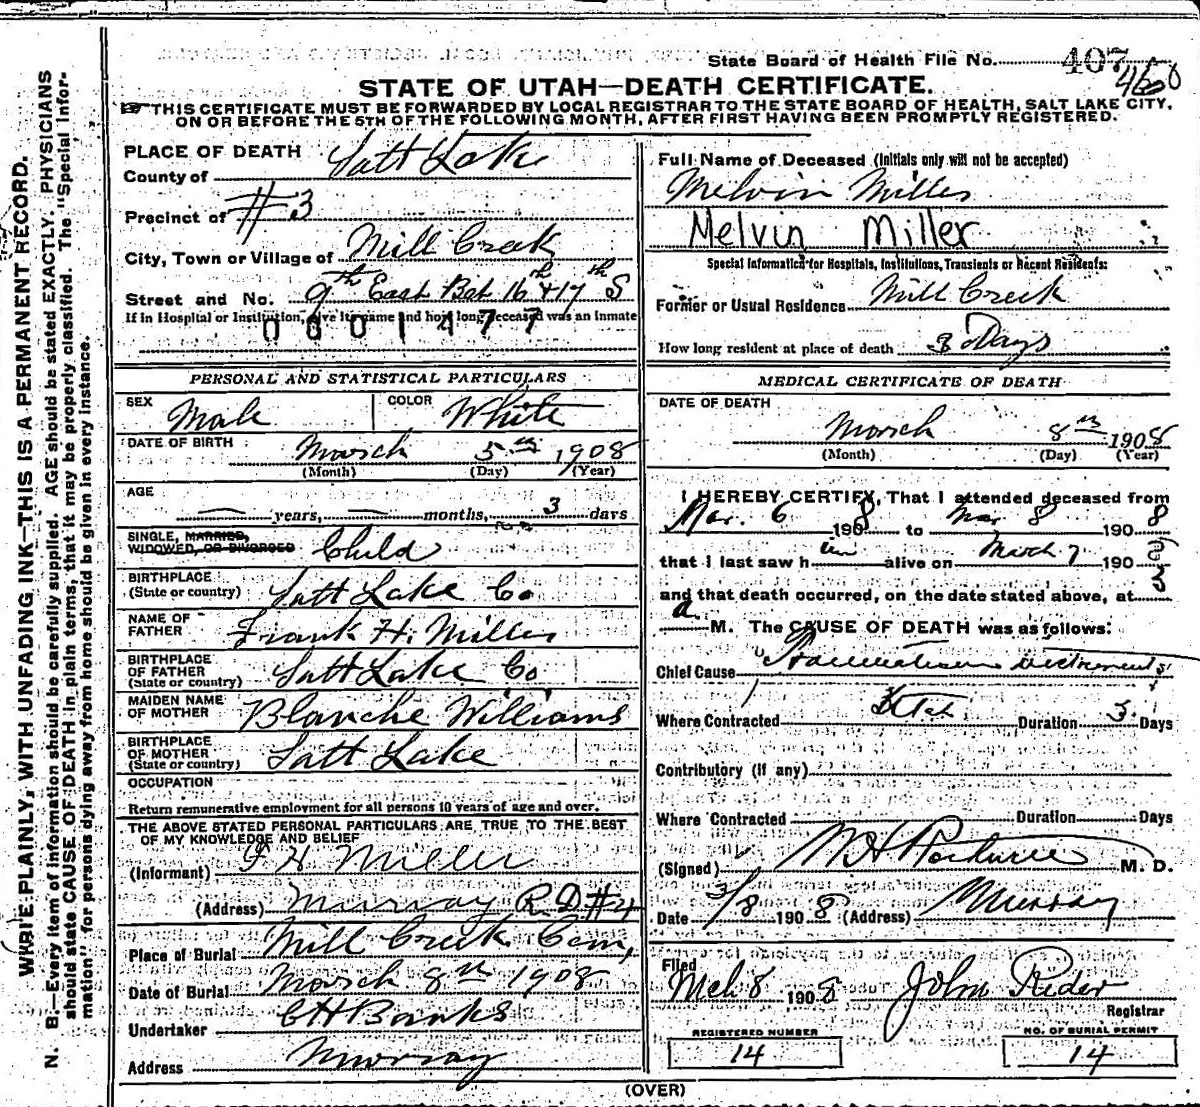 State Board of Health File No. 407
460
STATE OF UTAH—DEATH CERTIFICATE.
THIS CERTIFICATE MUST BE FORWARDED BY LOCAL REGISTRAR TO THE STATE BOARD OF HEALTH, SALT LAKE CITY,
ON OR BEFORE THE 5TH OF THE FOLLOWING MONTH, AFTER FIRST HAVING BEEN PROMPTLY REGISTERED.
WRITE PLAINLY, WITH UNFADING INK—THIS IS A PERMANENT RECORD.
N. B.—Every item of information should be carefully supplied. AGE should be stated EXACTLY. PHYSICIANS
should state CAUSE OF DEATH in plain terms, that it may be properly classified. The "Special Infor-
mation" for persons dying away from home should be given in every instance.
PLACE OF DEATH
County of Salt Lake
Precinct of #3
City, Town or Village of Mill Creek
Street and No. 9th East Bet 16th & 17th S
If in Hospital or Institution, give its name and how long deceased was an inmate
0801477
PERSONAL AND STATISTICAL PARTICULARS
SEX Male COLOR White
DATE OF BIRTH March 5th 1908
(Month) (Day) (Year)
AGE
— years, — months, 3 days
SINGLE, MARRIED,
WIDOWED, OR DIVORCED Child
BIRTHPLACE
(State or country) Salt Lake Co
NAME OF
FATHER Frank H. Miller
BIRTHPLACE
OF FATHER
(State or country) Salt Lake Co
MAIDEN NAME
OF MOTHER Blanche Williams
BIRTHPLACE
OF MOTHER
(State or country) Salt Lake
OCCUPATION
Return remunerative employment for all persons 10 years of age and over.
THE ABOVE STATED PERSONAL PARTICULARS ARE TRUE TO THE BEST
OF MY KNOWLEDGE AND BELIEF
(Informant) F H Miller
(Address) Murray R.D #4
Place of Burial Mill Creek Cem,
Date of Burial March 8th 1908
Undertaker C H Banks
Address Murray
Full Name of Deceased (Initials only will not be accepted)
Melvin Miller
Melvin Miller
Special Information for Hospitals, Institutions, Transients or Recent Residents:
Former or Usual Residence Mill Creek
How long resident at place of death 3 Days
MEDICAL CERTIFICATE OF DEATH
DATE OF DEATH
March 8th 1908
(Month) (Day) (Year)
I HEREBY CERTIFY, That I attended deceased from
Mar. 6 1908 to Mar 8 1908
that I last saw him alive on March 7 190
and that death occurred, on the date stated above, at
a M. The CAUSE OF DEATH was as follows:
Chief Cause
Where Contracted Utah Duration 3 Days
Contributory (if any)
Where Contracted Duration Days
(Signed) M. D.
Date 3/8 1908 (Address) Murray
Filed
Mch 8 1908 John Rider
Registrar
REGISTERED NUMBER NO. OF BURIAL PERMIT
14 14
(OVER)